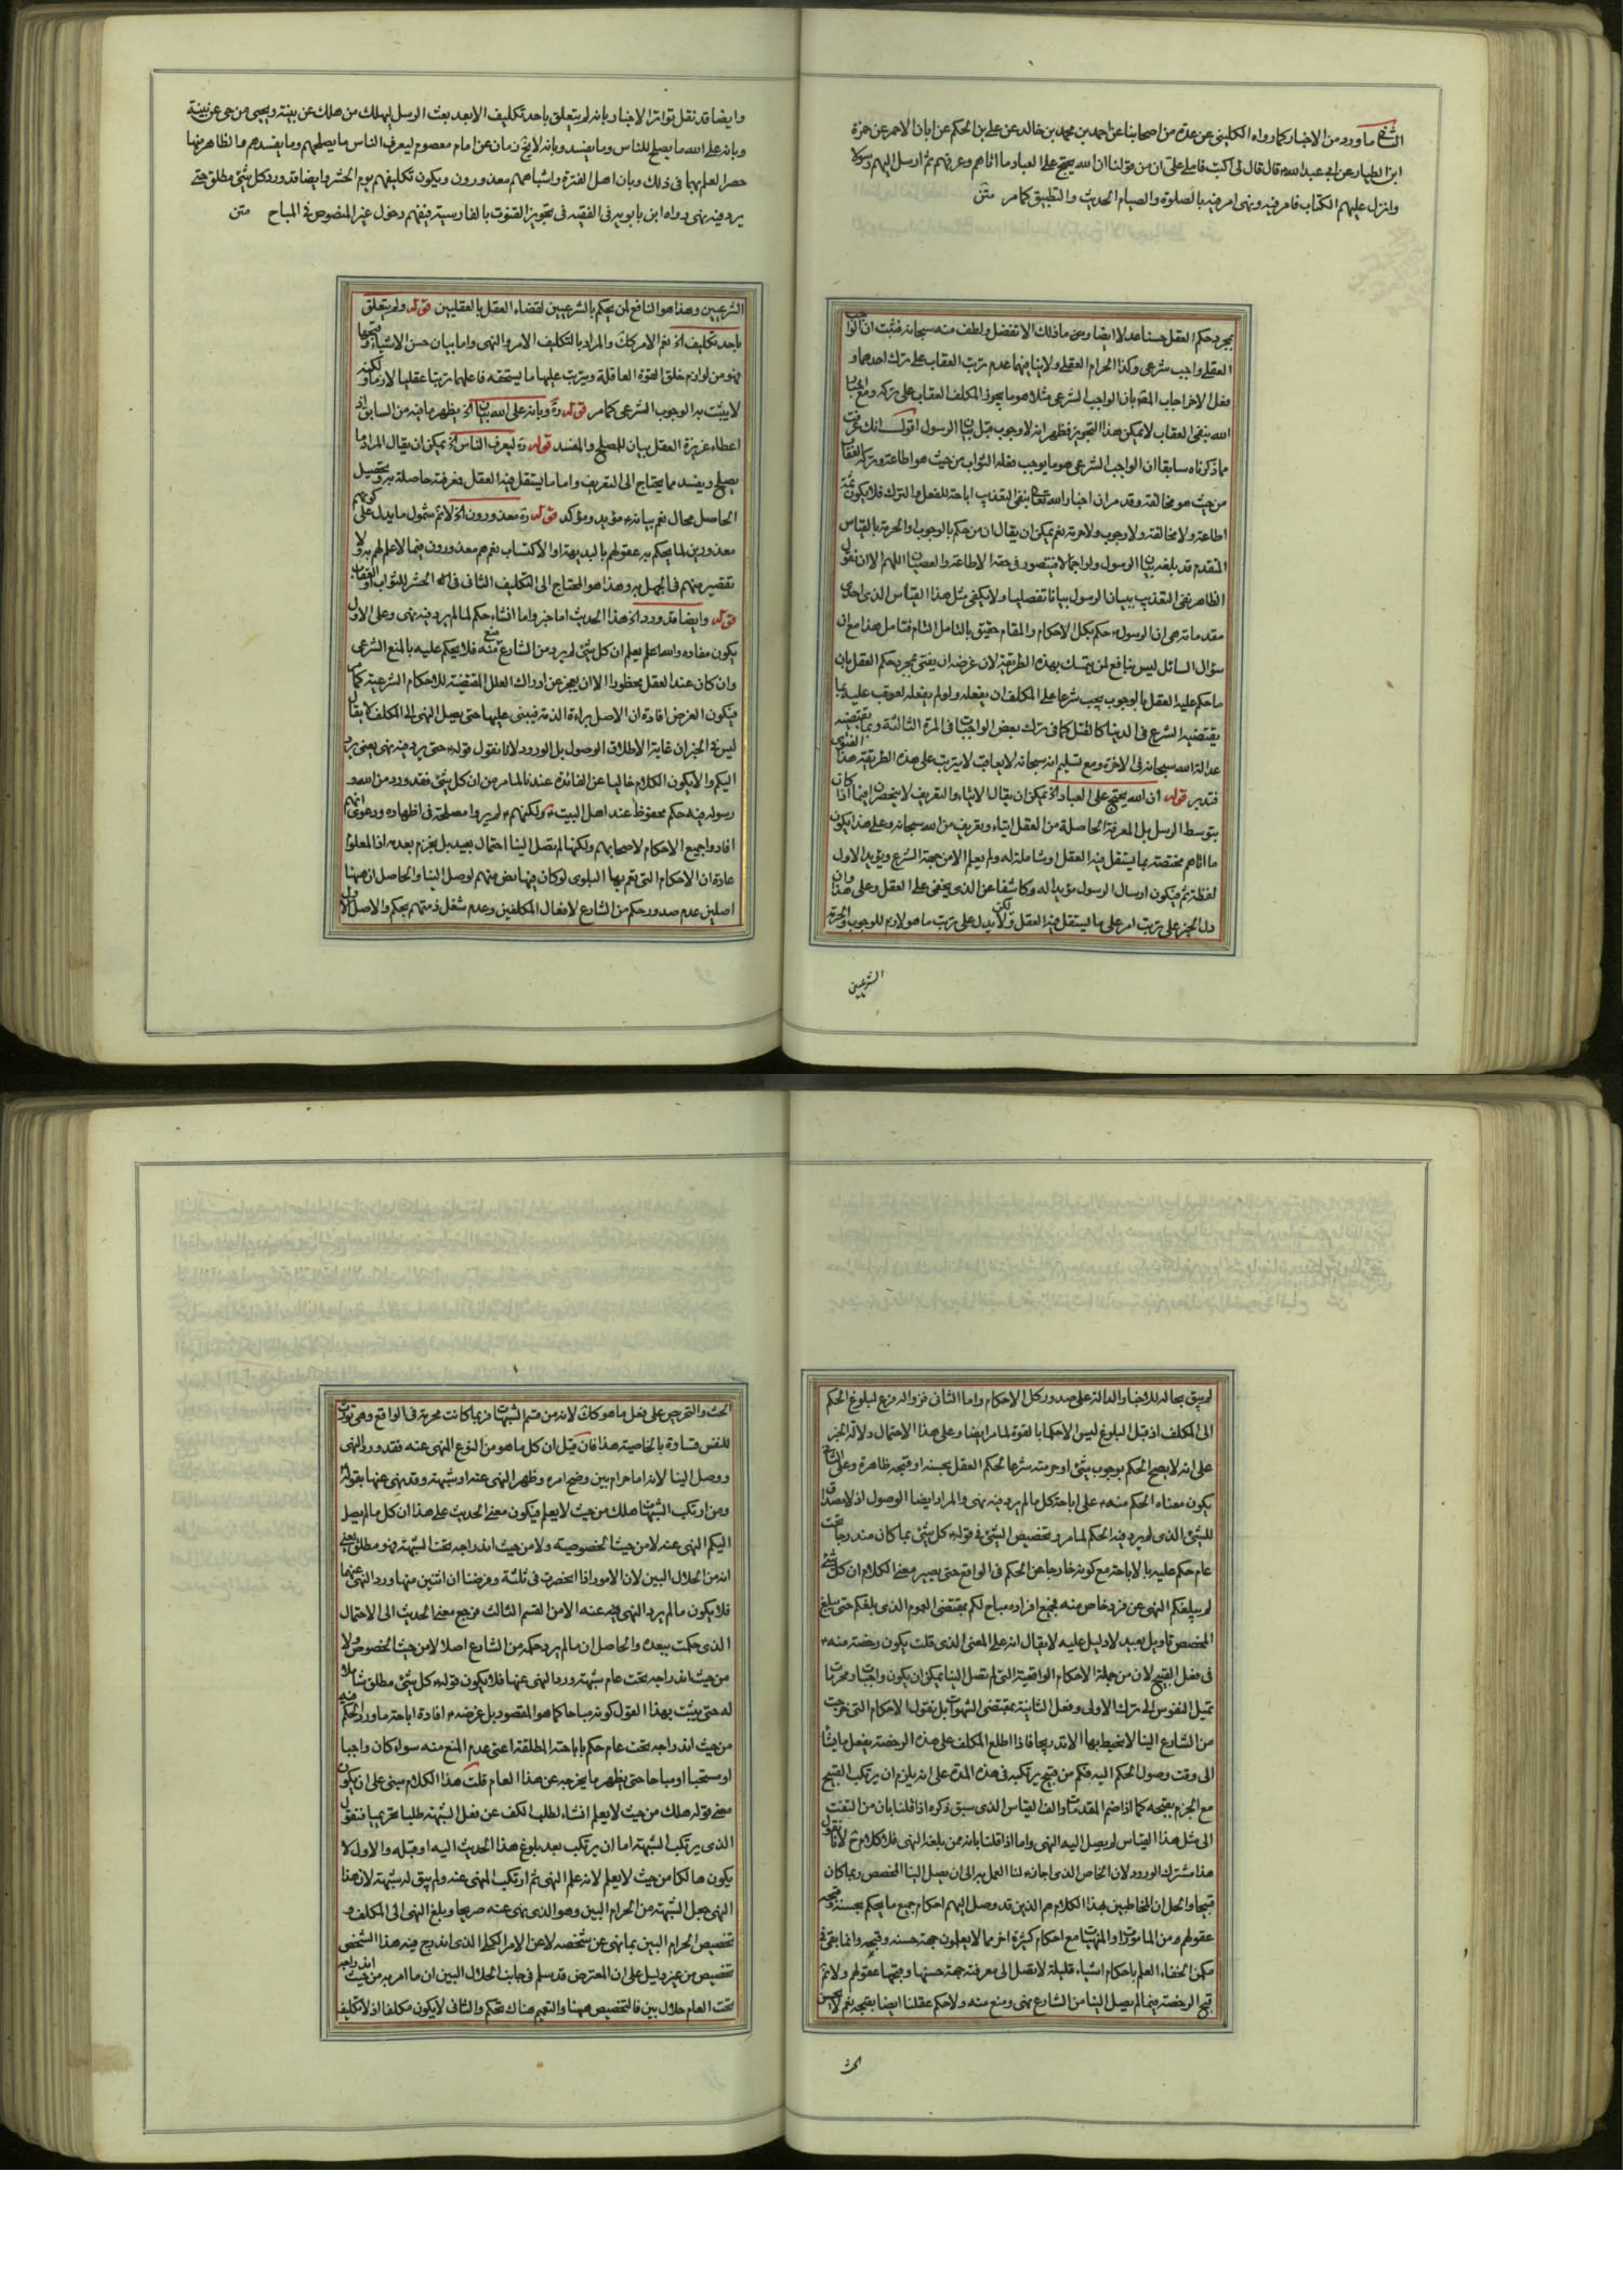 الثانى ما ورد من الاخبار كما رواه الكلينى عن عدة من اصحابنا عن احمد بن محمد بن خالد عن على بن الحكم عن ابان الاحمر عن حمزة
ابن الطيار عن ابى عبد الله قال قال لى اكتب فاملى على ان من قولنا ان الله يحتج على العباد بما اتاهم وعرفهم ثم ارسل اليهم رسولا
وانزل عليهم الكتاب فامر فيه ونهى امر فيه بالصلوة والصيام الحديث والتطبيق كما مر متن
بمجرد حكم العقل حسنا عدلا ايضا وعن ماذلك الا تفضل ولطف منه سبحانه فثبت ان الواجب
العقلى واجب شرعى وكذا الحرام العقلى ولا ينافيها عدم ترتب العقاب على ترك احدهما و
فعل الاخر اجاب المقه بان الواجب الشرعى مثلا هو ما يجوز المكلف العقاب على تركه ومع اخبار
الله بنفى العقاب لا يمكن هذا التجويز فظهر انه لا وجوب قبل بيان الرسول اقول انك عرفت
مما ذكرناه سابقا ان الواجب الشرعى هو ما يوجب فعله الثواب من حيث هو اطاعة وتركه العقاب
من حيث هو مخالفة وقد مر ان اخبار الله تعالى بنفى التعذيب اباحة للفعل والترك فلا يكون ثمة
اطاعة ولا مخالفة ولا وجوب ولا حرمة نعم يمكن ان يقال ان من حكم بالوجوب او الحرمة بالقياس
المتقدم قد بلغه بيان الرسول ولو اجمالا فتتصور فى حقه الاطاعة والعصيان اللهم الا ان نقول
الظاهر نفى التعذيب ببيان الرسول بيانا تفصليا ولا يكفى مثل هذا القياس الذى احدى
مقدماته هى ان الرسول حكم بكل الاحكام والمقام حقيق بالتامل التام فتامل هذا مع ان
سؤال السائل ليس بنافع لمن يتمسك بهذه الطريقة لان غرضه ان يفتى بمجرد حكم العقل بان
ما حكم عليه العقل بالوجوب يجب شرعا على المكلف ان يفعله ولو لم يفعله لعوقب عليه بما
يقتضيه الشرع فى الدنيا كالقتل كما فى ترك بعض الواجبات فى المرة الثالثة وبما يقتضيه
عدالة الله سبحانه فى الاخرة ومع تسليم انه سبحانه لا يعاقب لا يترتب على هذه الطريقة هذا الفتوى
فتدبر قوله ان الله يحتج على العباد اه يمكن ان يقال الايتاء والتعريف لا ينحصران فيما اذا كان
بتوسط الرسل بل المعرفة الحاصلة من العقل ايتاء وتعريف من الله سبحانه وعلى هذا يكون
ما اتاهم مختصة بما يستقل فيه العقل او شاملة له ولما يعلم الا من جهة الشرع ويؤيد الاول
لفظة ثم فيكون ارسال الرسول مؤيدا له وكاشفا عن الذى يخفى على العقل وعلى هذا وان
دل الخبر على ترتب امر على ما يستقل فيه العقل ولكن لا يدل على ترتب ما هو لازم للوجوب والحرمة
الشرعيين
وايضا قد نقل تواتر الاخبار بانه لم يتعلق باحد تكليف الا بعد بعث الرسل ليهلك من هلك عن بينة ويحيى من حى عن بينة
وبانه على الله ما يصلح للناس وما يفسد وبانه لا يخ زمان عن امام معصوم ليعرف الناس ما يصلحهم وما يفسدهم والظاهر منها
حصر العلم بهما فى ذلك وبان اهل الفترة واشباههم معذورون ويكون تكليفهم يوم الحشر وايضا قد ورد كل شئ مطلق حتى
يرد فيه نهى رواه ابن بابويه فى الفقيه فى تجويز القنوت بالفارسية فيفهم دخول غير المنصوص فى المباح متن
الشرعيين وهذا هو النافع لمن يحكم بالشرعيين لقضاء العقل بالعقليين قوله ولم يتعلق
باحد تكليف اه نعم الامر كك والمراد بالتكليف الامر والنهى واما بيان حسن الاشياء وقبحها
فهو من لوازم خلق القوة العاقلة ويترتب عليها ما يستحقه فاعلها ترتبا عقليا لازما ولكنه
لا يثبت به الوجوب الشرعى كما مر قوله وبانه على الله بيان اه يظهر ما فيه من السابق اذ
اعطاء غريزة العقل بيان للمصلح والمفسد قوله ليعرف الناس اه يمكن ان يقال المراد ما
يصلح ويفسد مما يحتاج الى التعريف واما ما يستقل فيه العقل فمعرفته حاصلة به وتحصيل
الحاصل محال نعم بيانه مؤيد ومؤكد قوله معذورون اه لا ثم شمول ما يدل على كونهم
معذورين لما يحكم به عقولهم بالبديهة او الاكتساب نعم هم معذورون فيما لا علم لهم به ولا
تقصير منهم فى الجهل به وهذا هو المحتاج الى التكليف الثانى فى الحشر للثواب او العقاب
قوله وايضا قد ورد اه هذا الحديث اما خبر واما انشاء حكم لما لم يرد فيه نهى وعلى الاول
يكون مفاده والله اعلم ان كل شئ لم يرد من الشارع منع منه فلا يحكم عليه بالمنع الشرعى
وان كان عند العقل محظورا الا ان يعجز عن ادراك العلل المقتضية للاحكام الشرعية كما مر
فيكون الغرض افادة ان الاصل براءة الذمة فيبنى عليها حتى يصل النهى الى المكلف لا يقال
ليس فى الخبر ان غاية الاطلاق الوصول بل الورود لانا نقول قوله حتى يرد فيه نهى يعنى يرد
اليكم والا يكون الكلام خاليا عن الفائدة عندنا لما مر من ان كل شئ فقد ورد من الله و
رسوله فيه حكم محفوظ عند اهل البيت ولكنهم لم يروا مصلحة فى اظهاره ودعوى انهم
افادوا جميع الاحكام لاصحابهم ولكنها لم تصل الينا احتمال بعيد بل يجزم بعدمه اذ المعلوم
عادة ان الاحكام التى تعم بها البلوى لو كان فيها نص منهم لوصل الينا والحاصل ان ههنا
اصلين عدم صدور حكم من الشارع لافعال المكلفين وعدم شغل ذمتهم بحكم والاصل الاول
لم يبق بحاله للاخبار الدالة على صدور كل الاحكام واما الثانى فزواله فرع لبلوغ الحكم
الى المكلف اذ قبل البلوغ ليس الا حكما بالقوة لما مر ايضا وعلى هذا الاحتمال دلالة الخبر
على انه لا يصح الحكم بوجوب شئ او حرمته شرعا لحكم العقل بحسنه او قبحه ظاهرة وعلى الثانى
يكون معناه الحكم منه على اباحة كل ما لم يرد فيه نهى والمراد ايضا الوصول اذ لا مصداق
للشئ الذى لم يرد فيه الحكم لما مر وتخصيص الشئ فى قوله كل شئ بما كان مندرجا تحت
عام حكم عليه بالاباحة مع كونه خارجا عن الحكم فى الواقع حتى يصير معنى الكلام ان كل شئ
لم يبلغكم النهى عن فرد خاص منه فجميع افراده مباح لكم بمقتضى العموم الذى بلغكم حتى يبلغ
المخصص تاويل بعيد لا دليل عليه لا يقال انه على المعنى الذى قلت يكون رخصة منه
فى فعل القبيح لان من جملة الاحكام الواقعية التى لم تصل الينا يمكن ان يكون واجبات ومحرمات
تميل النفوس الى ترك الاولى وفعل الثانية بمقتضى الشهوات بل نقول الاحكام التى خرجت
من الشارع الينا لا نحيط بها الا تدريجا فاذا اطلع المكلف على هذه الرخصة يفعل ما يشاء
الى وقت وصول الحكم اليه فكم من قبيح يرتكبه فى هذه المدة على انه يلزم ان يرتكب القبيح
مع الجزم بقبحه كما اذا ضم المقدمات والف القياس الذى سبق ذكره اذا قلنا بان من التفت
الى مثل هذا القياس لم يصل اليه النهى واما اذا قلنا بانه ممن بلغه النهى فلا كلام ح لانا نقول
هذا مشترك الورود لان الخاص الذى اجازه لنا العمل به الى ان يصل الينا المخصص ربما كان
قبيحا والحل ان المخاطبين بهذا الكلام هم الذين قد وصل اليهم احكام جميع ما يحكم بحسنه وقبحه
عقولهم من المامورات والمنهيات مع احكام كثيرة اخر مما لا يعلمون جهة حسنه وقبحه وانما بقى فى
مكمن الخفاء العلم باحكام اشياء قليلة لا تصل الى معرفة جهة حسنها وقبحها عقولهم ولا ثم
قبح الرخصة فيما لم يصل الينا من الشارع نهى ومنع منه ولا حكم عقلنا ايضا بقبحه نعم لا يحسن
الحث
الحث والتحريص على فعل ما هو كك لانه من قسم الشبهات فربما كانت محرمة فى الواقع وهى تورث
للنفس قساوة بالخاصية هذا فان قيل ان كل ما هو من النوع المنهى عنه فقد ورد النهى
ووصل الينا لانه اما حرام بين وضح امره وظهر النهى عنه او شبهة وقد نهى عنها بقوله
ومن ارتكب الشبهات هلك من حيث لا يعلم فيكون معنى الحديث على هذا ان كل ما لم يصل
اليكم النهى عنه لا من حيث الخصوصية ولا من حيث اندراجه تحت الشبهة فهو مطلق يعنى
انه من الحلال البين لان الامور اذا انحصرت فى ثلثة وفرضنا ان اثنين منها ورد النهى عنهما
فلا يكون ما لم يرد النهى عنه الا من القسم الثالث فرجع معنى الحديث الى الاحتمال
الذى حكمت ببعده والحاصل ان ما لم يرد حكمه من الشارع اصلا لا من حيث الخصوص ولا
من حيث اندراجه تحت عام شبهة ورد النهى عنها فلا يكون قوله كل شئ مطلق شاملا
له حتى يثبت بهذا القول كونه مباحا كما هو المقصود بل غرضه افادة اباحة ما ورد الحكم فيه
من حيث اندراجه تحت عام حكم باباحته المطلقة اعنى عدم المنع منه سواء كان واجبا
او مستحبا او مباحا حتى يظهر ما يخرجه عن هذا العام قلت هذا الكلام مبنى على ان يكون
معنى قوله هلك من حيث لا يعلم انشاء لطلب الكف عن فعل الشبهة طلبا تحريميا فنقول
الذى يرتكب الشبهة اما ان يرتكب بعد بلوغ هذا الحديث اليه او قبله والاول لا
يكون هالكا من حيث لا يعلم لانه علم النهى ثم ارتكب المنهى عنه ولم يبق له شبهة لان هذا
النهى جعل الشبهة من الحرام البين وهو الذى نهى عنه صريحا وبلغ النهى الى المكلف و
تخصيص الحرام البين بما نهى عن شخصه لا عن الامر الكلى الذى اندرج فيه هذا الشخص
تخصيص من غير دليل على ان المعترض قد سلم فى جانب الحلال البين ان ما امر به من حيث اندراجه
تحت العام حلال بين فالتخصيص ههنا والتعميم هناك تحكم والثانى لا يكون مكلفا اذ لا تكليف